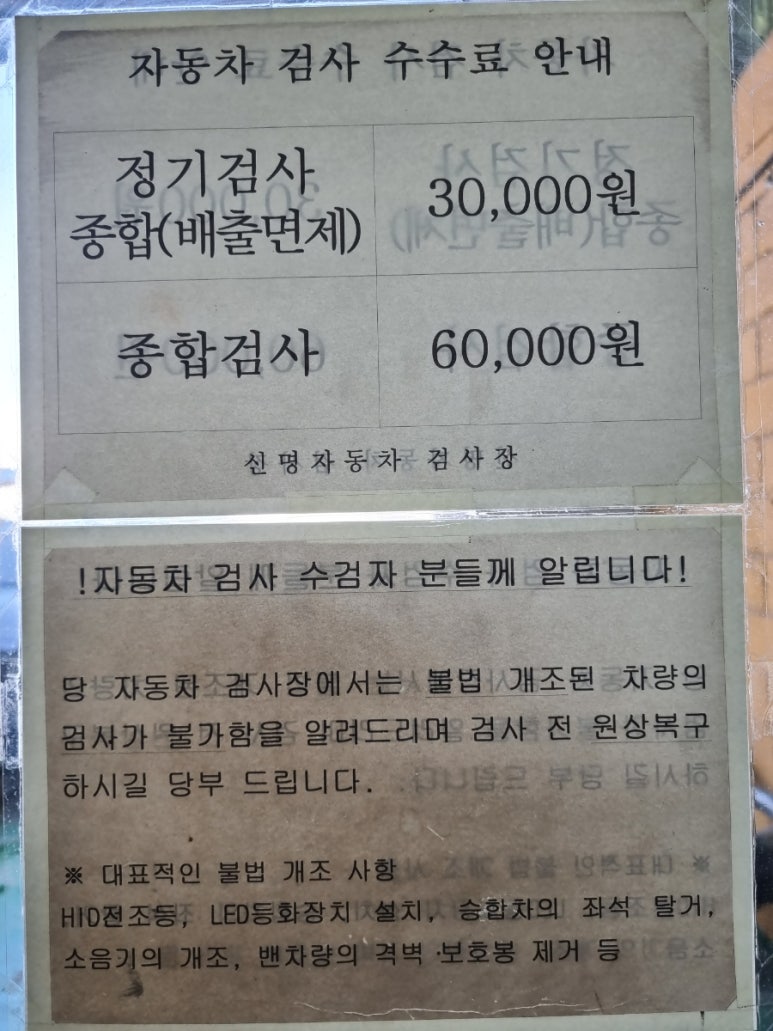 자동차 검사 수수료 안내
정기검사
종합(배출면제)
30,000원
종합검사
60,000원
신명자동차 검사장
!자동차 검사 수검자 분들께 알립니다!
당 자동차 검사장에서는 불법 개조된 차량의
검사가 불가함을 알려드리며 검사 전 원상복구
하시길 당부 드립니다.
※ 대표적인 불법 개조 사항
HID전조등, LED등화장치 설치, 승합차의 좌석 탈거,
소음기의 개조, 밴차량의 격벽·보호봉 제거 등